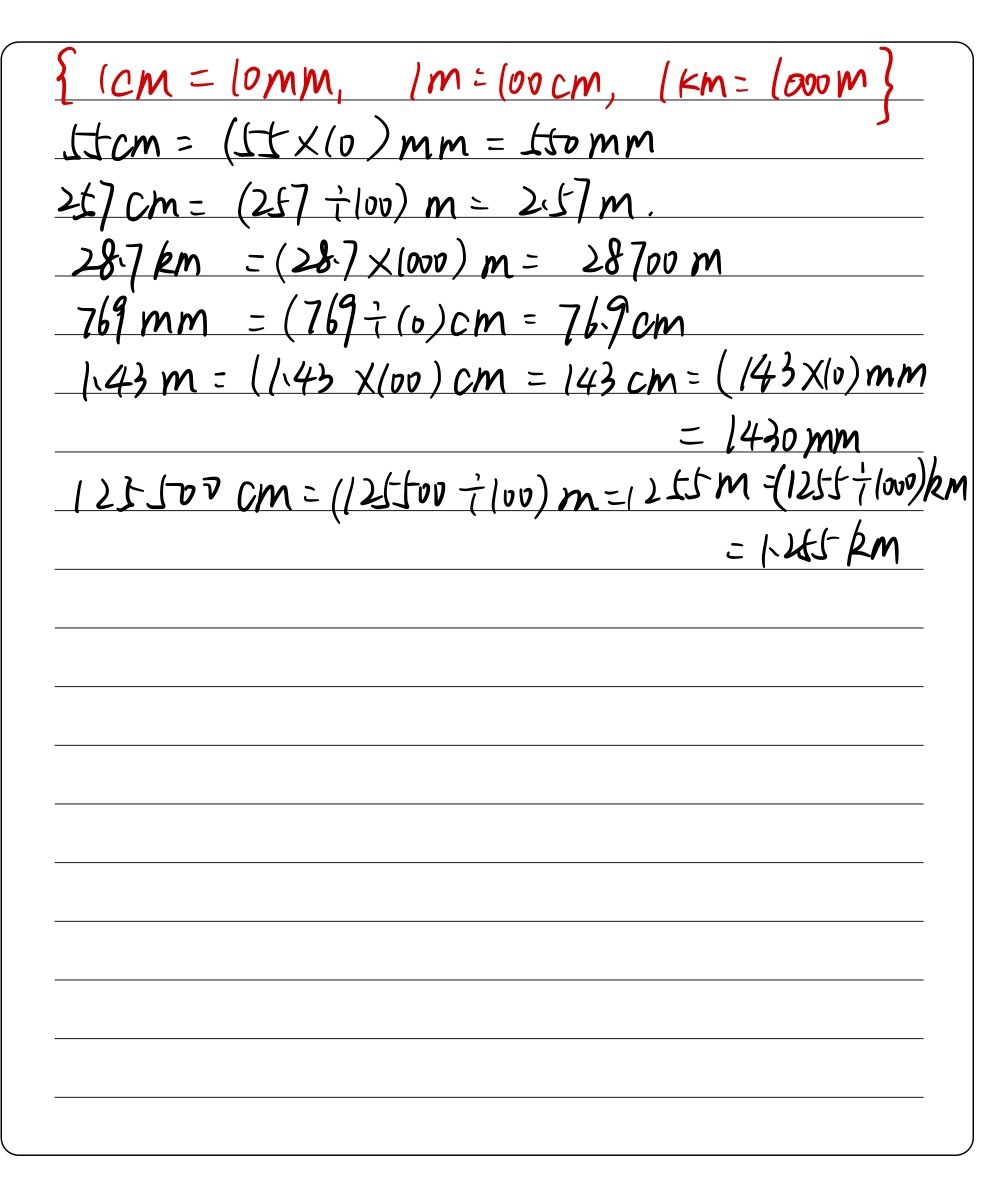 { 1cm = 10mm, 1m = 100cm, 1km = 1000m }
55cm = (55×10)mm = 550mm
257cm = (257÷100) m = 2.57m.
28.7km = (28.7×1000) m = 28700 m
769mm = (769÷10)cm = 76.9cm
1.43m = (1.43×100)cm = 143cm = (143×10)mm
= 1430mm
125500cm = (125500÷100)m = 1255m = (1255÷1000)km
= 1.255km